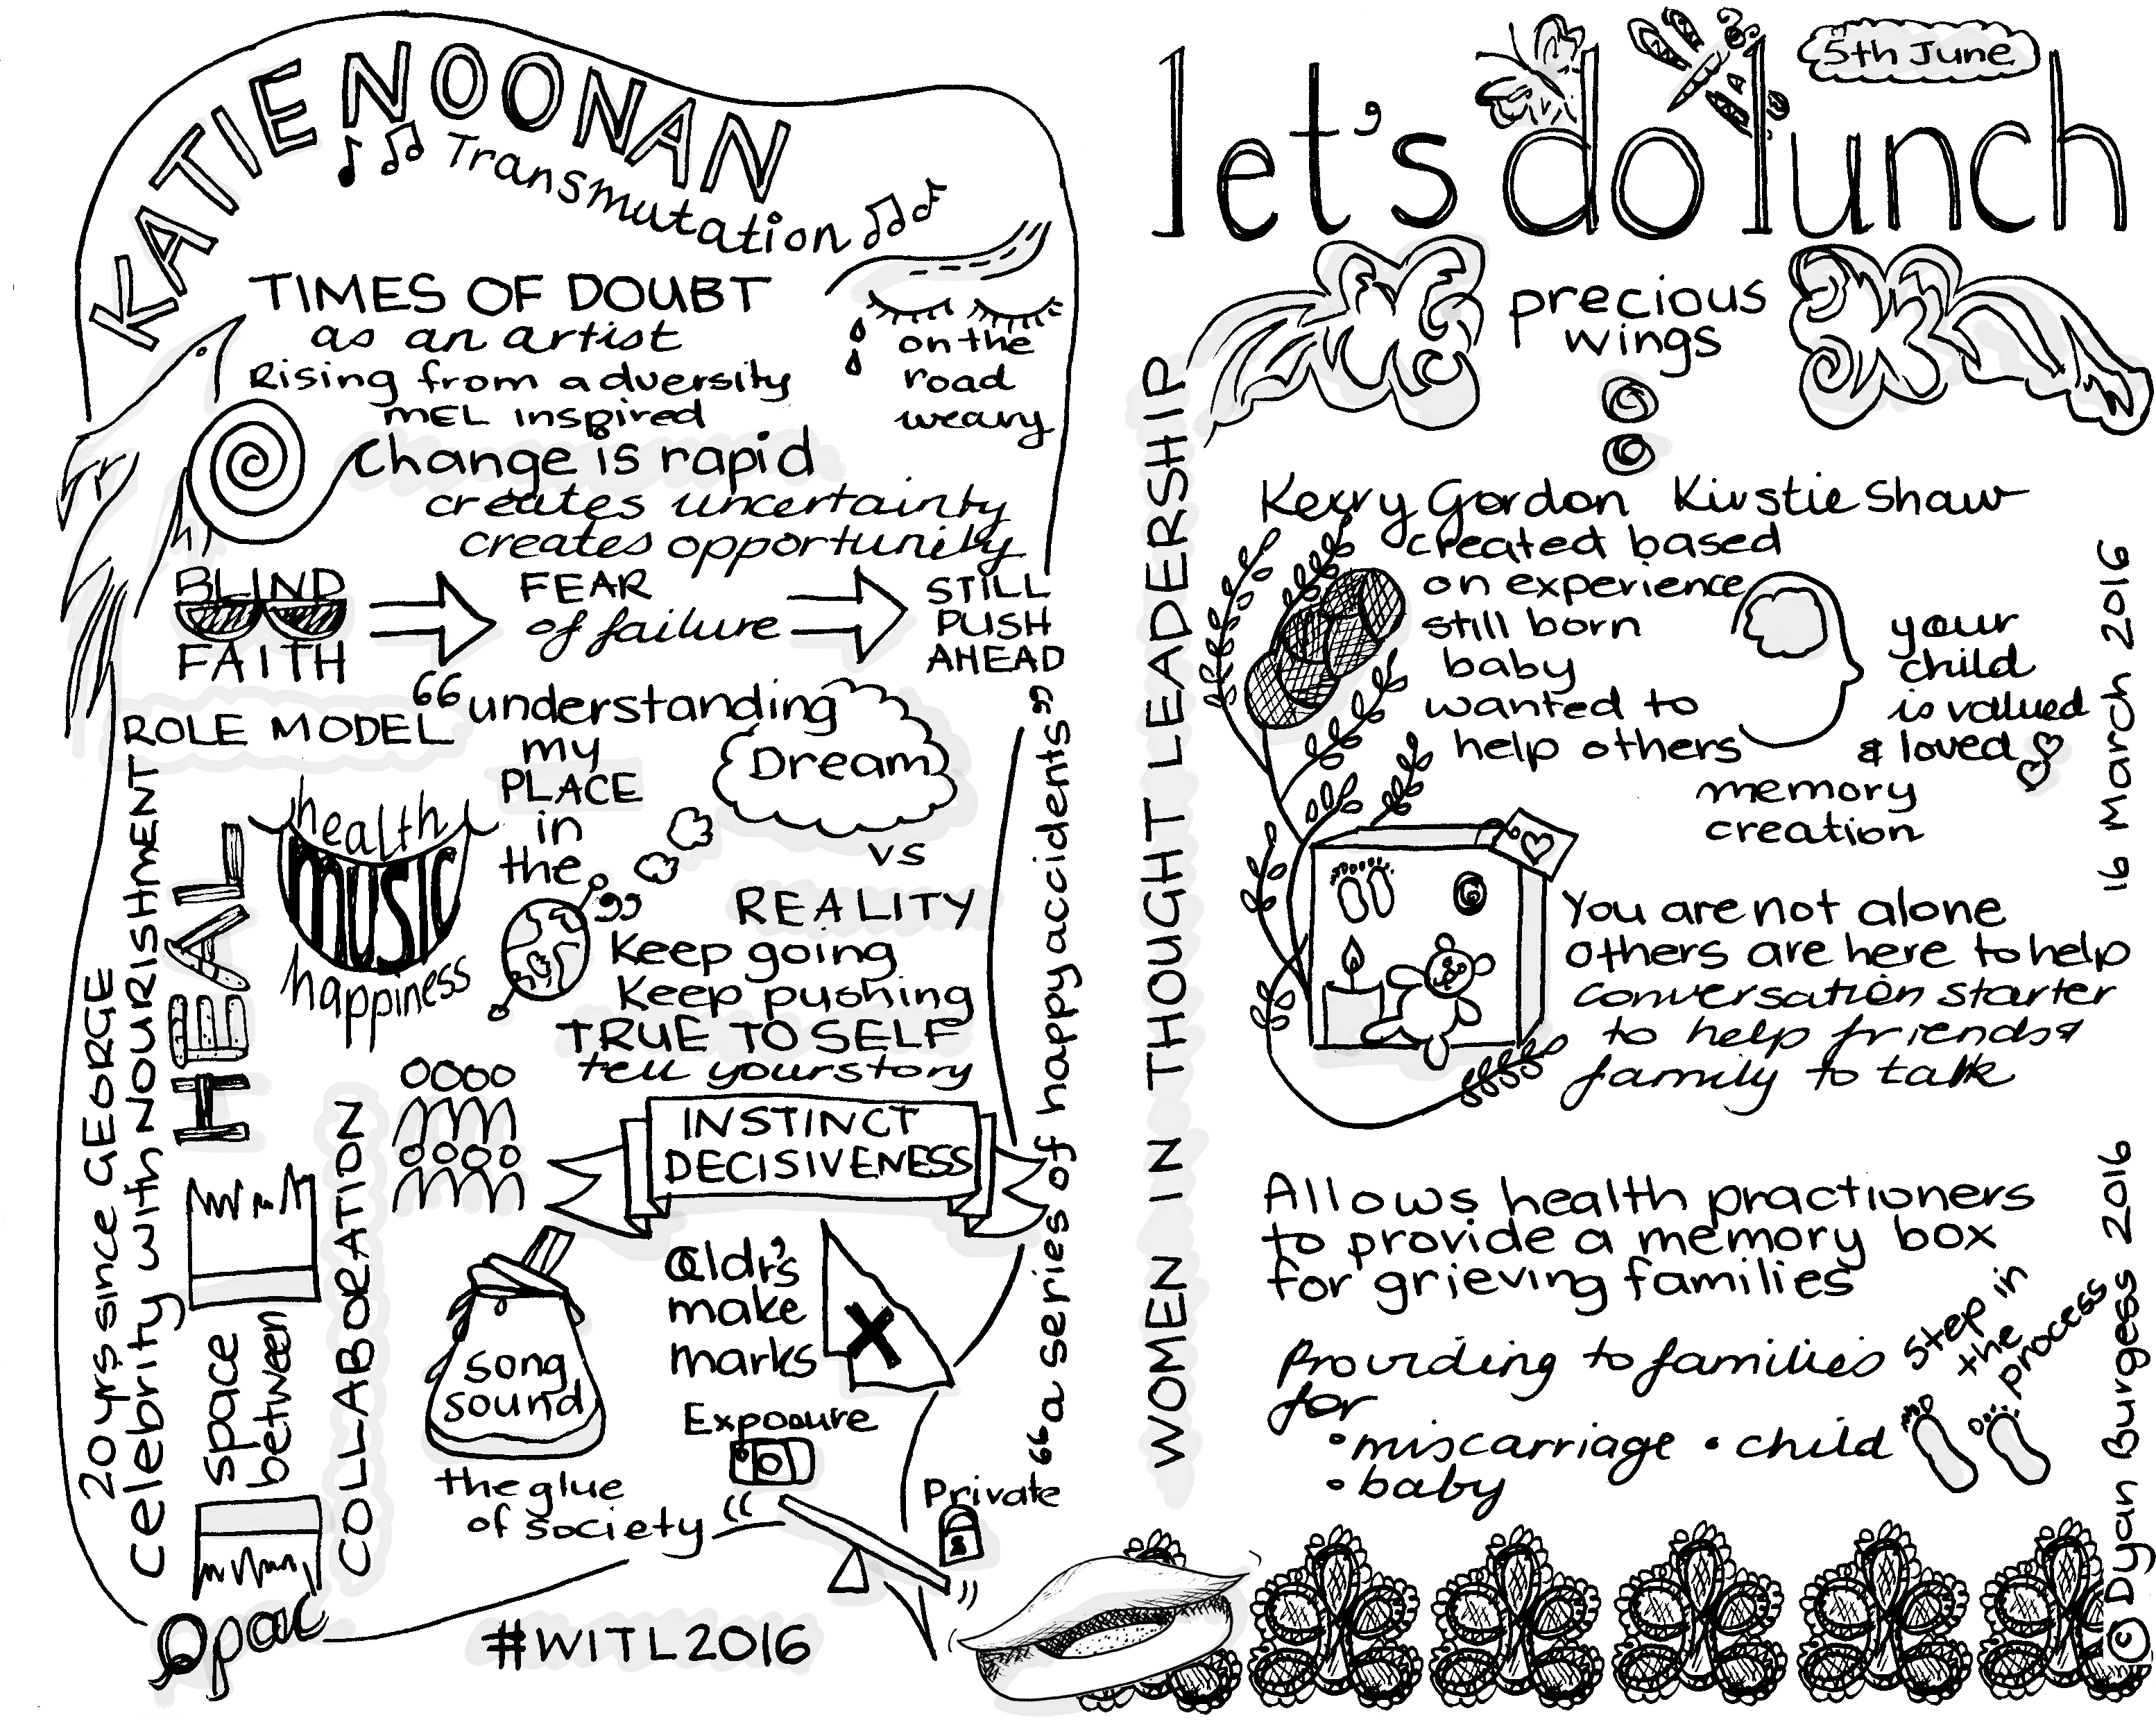 KATIE NOONAN
Transmutation
TIMES OF DOUBT
as an artist
Rising from adversity
MEL inspired
on the
road
weary
Change is rapid
creates uncertainty
creates opportunity
BLIND
FAITH
FEAR
of failure
STILL
PUSH
AHEAD
ROLE MODEL
“understanding
my
PLACE
in
the
”
Dream
vs
REALITY
health
music
happiness
HEAL
20yrs since GEORGE
celebrity with NOURISHMENT
Keep going
Keep pushing
TRUE TO SELF
tell your story
INSTINCT
DECISIVENESS
“a series of happy accidents”
COLLABORATION
space
between
song
sound
the glue
of society
make
marks
X
Exposure
Private
Opal
#WITL2016
let's do lunch
5th June
precious
wings
WOMEN IN THOUGHT LEADERSHIP
Kerry Gordon Kirstie Shaw
created based
on experience
still born
baby
wanted to
help others
your
child
is valued
& loved
memory
creation
You are not alone
others are here to help
conversation starter
to help friends &
family to talk
Allows health practioners
to provide a memory box
for grieving families
Providing to families
for
•miscarriage •child
•baby
step in
the
process
16 March 2016
© Dyan Burgess 2016